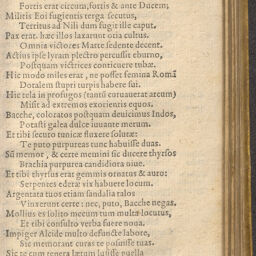 Fortis erat circum, fortis & ante Ducem,
Militis Eoi fugientis terga secutus,
Territus ad Nili dum fugit ille caput.
Pax erat. hæc illos laxarunt otia cultus.
Omnia victores Marte sedente decent.
Actius ipse lyram plectro percussit eburno,
Postquam victrices conticuere tubæ.
Hic modo miles erat, ne posset femina Romã
Dotalem stupri turpis habere sui.
Hic tela in profugos (tantũ curuauerat arcum)
Misit ad extremos exorientis equos.
Bacche, coloratos postquam deuicimus Indos,
Potasti galea dulce iuuante merum.
Et tibi securo tunicæ fluxere solutæ:
Te puto purpureas tunc habuisse duas.
Sũ memor, & certe memini sic ducere thyrsos
Brachia purpurea candidiora niue.
Et tibi thyrsus erat gemmis ornatus & auro:
Serpentes ederæ vix habuere locum.
Argentata tuos etiam sandalia talos
Vinxerunt certe: nec, puto, Bacche negas.
Mollius es solito mecum tum multa locutus,
Et tibi consulto verba fuere noua.
Impiger Alcide multo defuncte labore,
Sic memorant curas te posuisse tuas.
Sic te cum tenera lætum lusisse puella